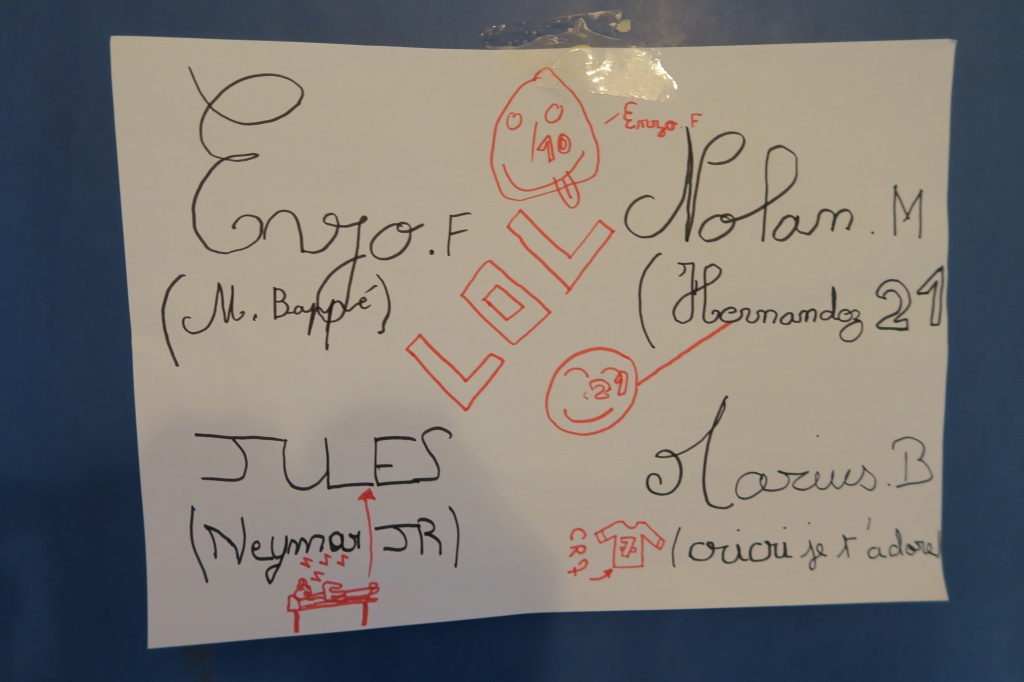 Enzo.F
(M. Bappé)
10
Enzo.F
LOL
Nolan.M
(Hernandez 21
21
JULES
(Neymar JR)
Marius.B
CR7
7
(cricri je t'adore